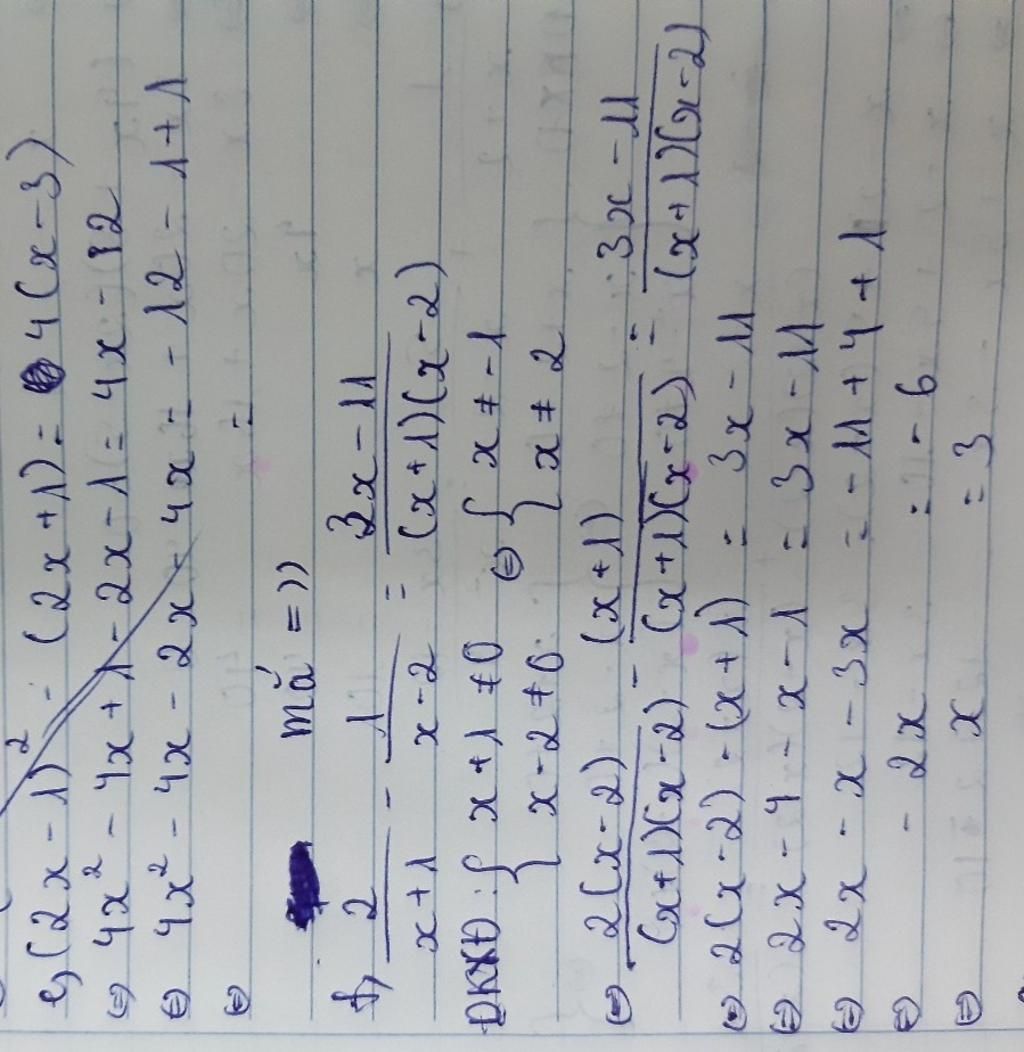 e, (2x - 1)² - (2x + 1) = 4(x - 3)
⇔ 4x² - 4x + 1 - 2x - 1 = 4x - 12
⇔ 4x² - 4x - 2x - 4x = - 12 - 1 + 1
⇔ =
má =))
f, 2/(x+1) - 1/(x-2) = (3x - 11)/((x+1)(x-2))
ĐKXĐ: { x + 1 ≠ 0 ⇔ { x ≠ -1
x - 2 ≠ 0 x ≠ 2
⇔ 2(x-2)/((x+1)(x-2)) - (x+1)/((x+1)(x-2)) = (3x - 11)/((x+1)(x-2))
⇔ 2(x-2) - (x+1) = 3x - 11
⇔ 2x - 4 - x - 1 = 3x - 11
⇔ 2x - x - 3x = - 11 + 4 + 1
⇔ - 2x = - 6
⇔ x = 3